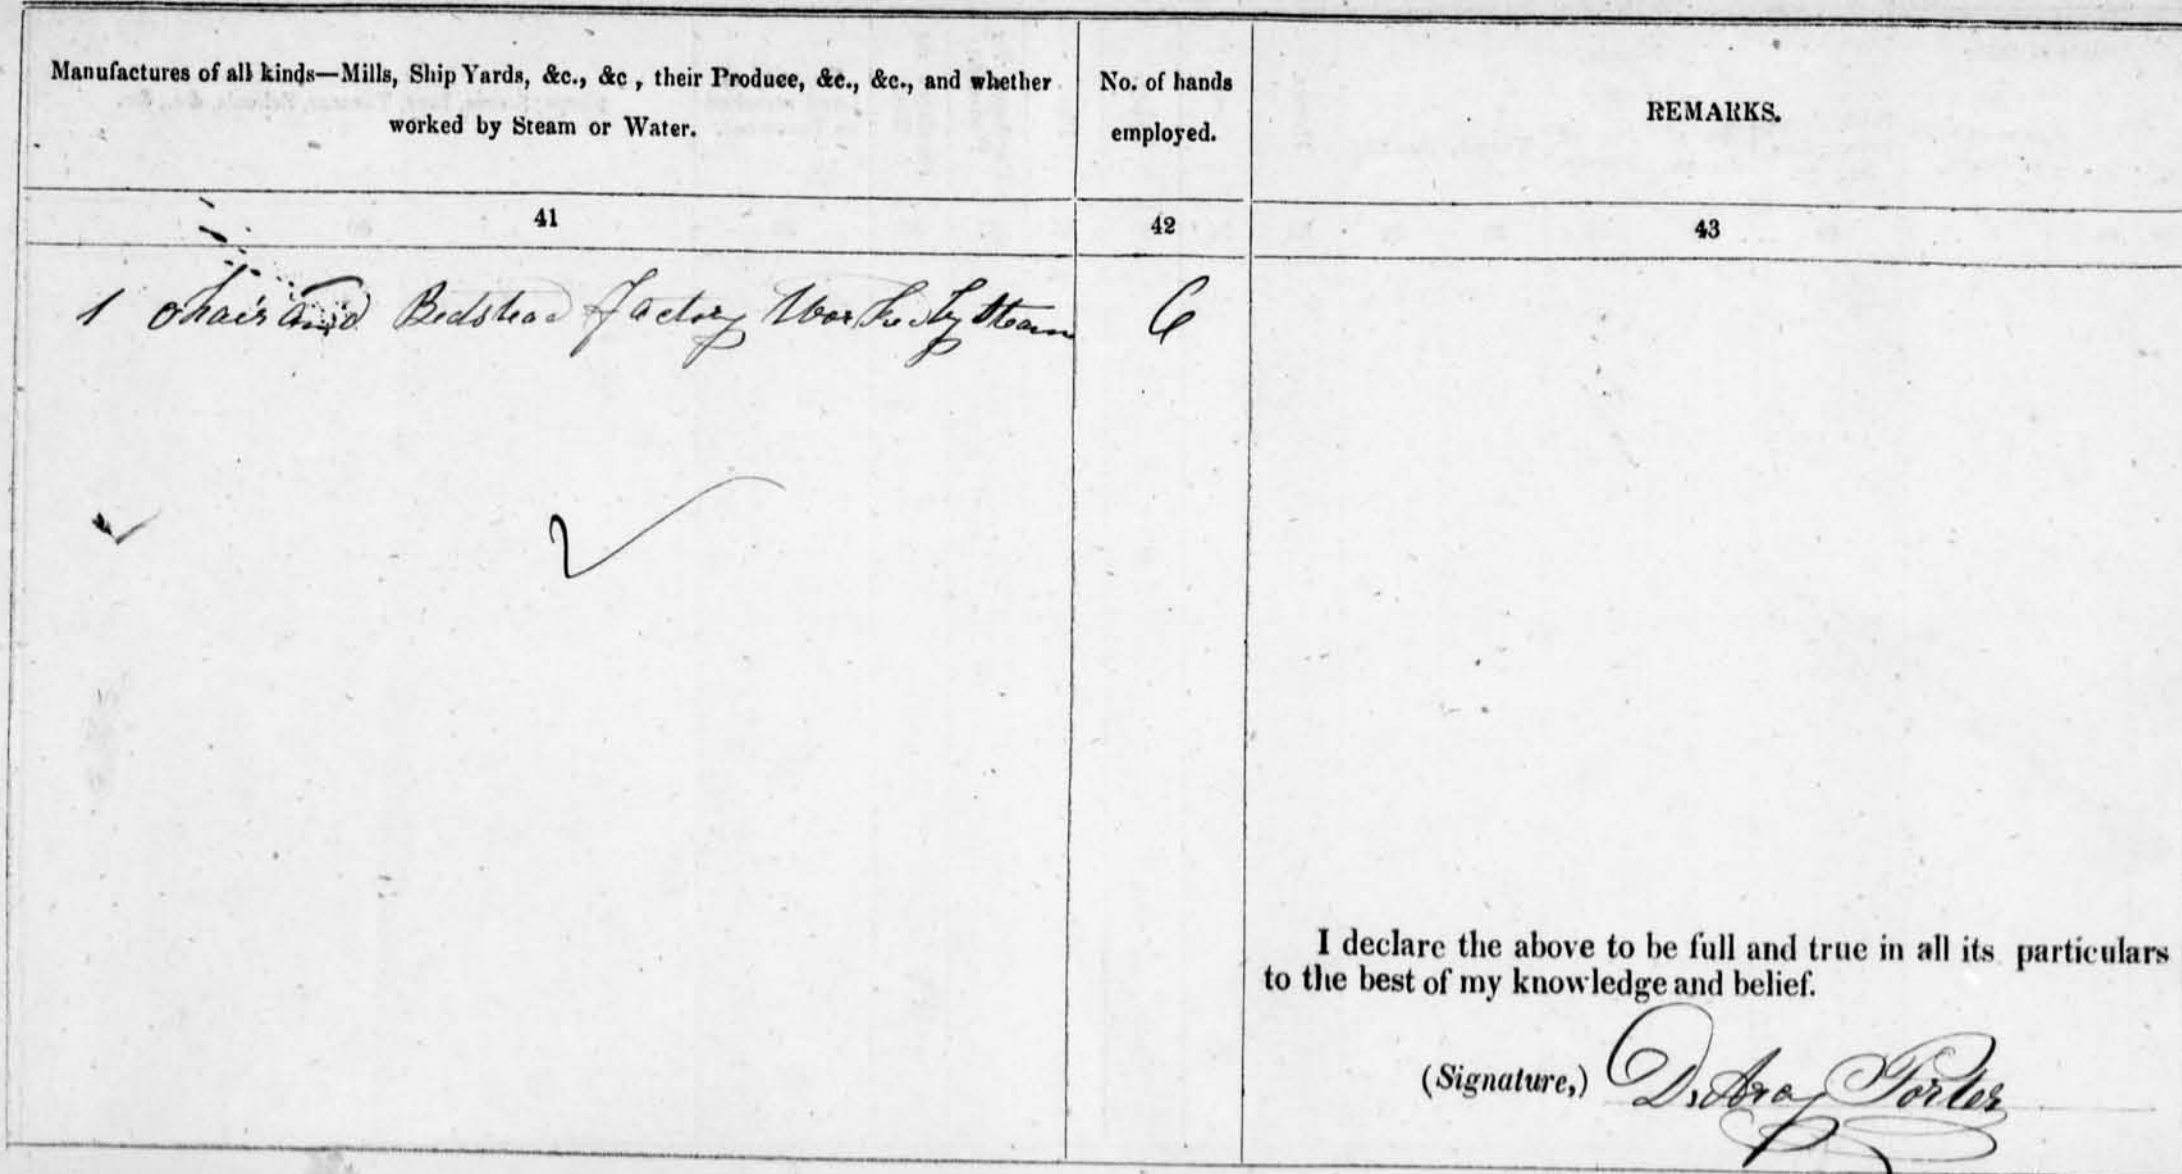 Manufactures of all kinds—Mills, Ship Yards, &c., &c , their Produce, &c., &c., and whether
worked by Steam or Water.
No. of hands
employed.
REMARKS.
41
42
43
1 Chair and Bedstead Factory Worked by Steam
6
I declare the above to be full and true in all its particulars
to the best of my knowledge and belief.
(Signature,) Porter